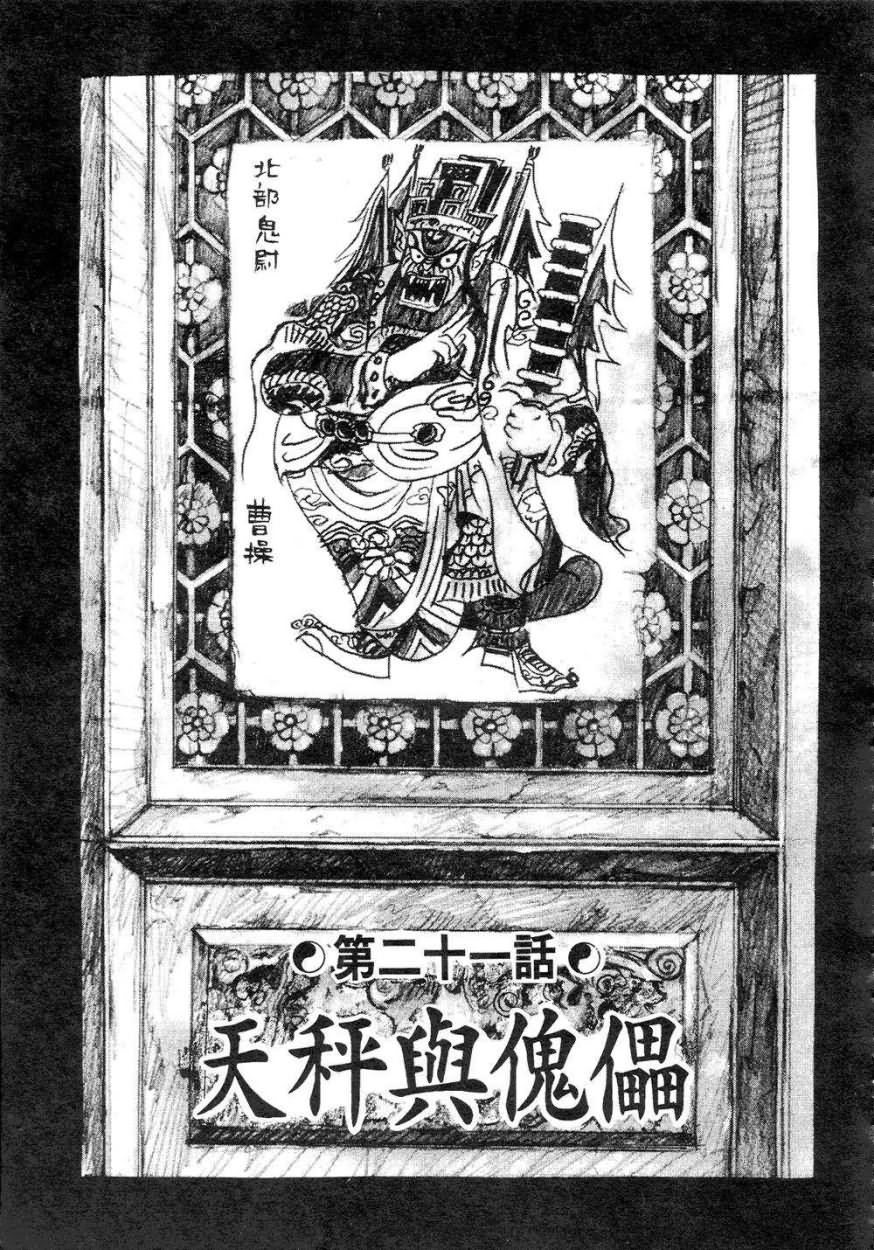 北部鬼尉
曹操
第二十一話
天秤與傀儡